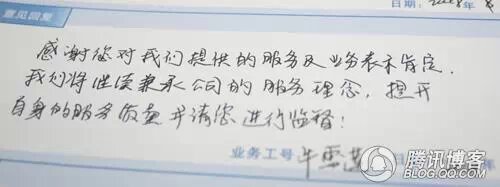 日期：
意见回复
感谢您对我们提供的服务及业务表示肯定，
我们将继续秉承公司的服务理念，提升
自身的服务质量并请您进行监督！
业务工号 牛雪
日
腾讯博客
BLOG.QQ.COM